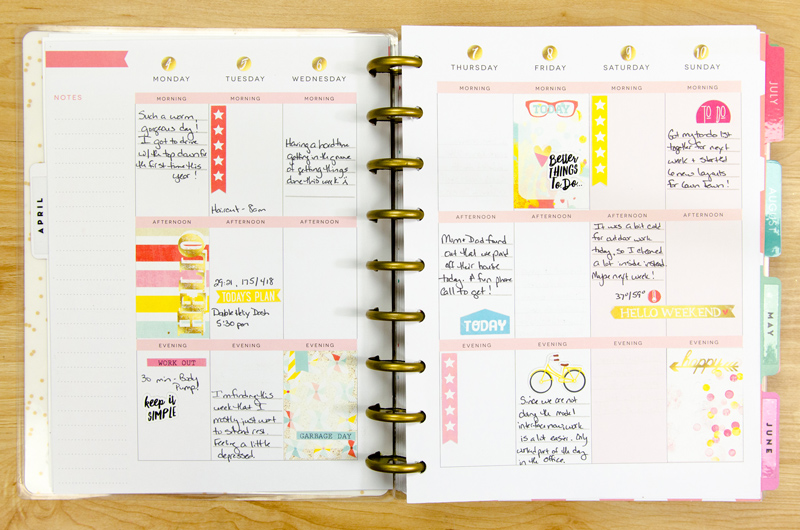 4
5
6
MONDAY
TUESDAY
WEDNESDAY
NOTES
MORNING
MORNING
MORNING
Such a warm,
gorgeous day!
I got to drive
w/ the top down for
the first time this
year!
Haircut - 8am
Having a hard time
getting in the groove
of getting things
done this week :\
APRIL
AFTERNOON
AFTERNOON
AFTERNOON
HELLO
29:21, 175/418
TODAY'S PLAN
Dash
5:30 pm
EVENING
EVENING
EVENING
WORK OUT
30 min - Body
Pump!
keep it
SIMPLE
I'm finding this
week that I
mostly just want
to sit and rest.
Feeling a little
depressed.
GARBAGE DAY
7
8
9
10
THURSDAY
FRIDAY
SATURDAY
SUNDAY
MORNING
MORNING
MORNING
MORNING
TODAY
Better
THINGS
To Do..
TO DO
Got my to-do list
together for next
week + started
6 new layouts
for Gwin Town!
AFTERNOON
AFTERNOON
AFTERNOON
AFTERNOON
Mom + Dad found
out that we paid
off their house
today. A fun phone
call to get!
TODAY
It was a bit cold
for outdoor work
today, so I cleaned
a lot inside instead.
Maybe next week!
37°/59°
HELLO WEEKEND
EVENING
EVENING
EVENING
EVENING
Since we are not
doing the model
interface now, work
is a lot easier. Only
worked part of the day
in the office.
happy
JULY
AUGUST
MAY
JUNE